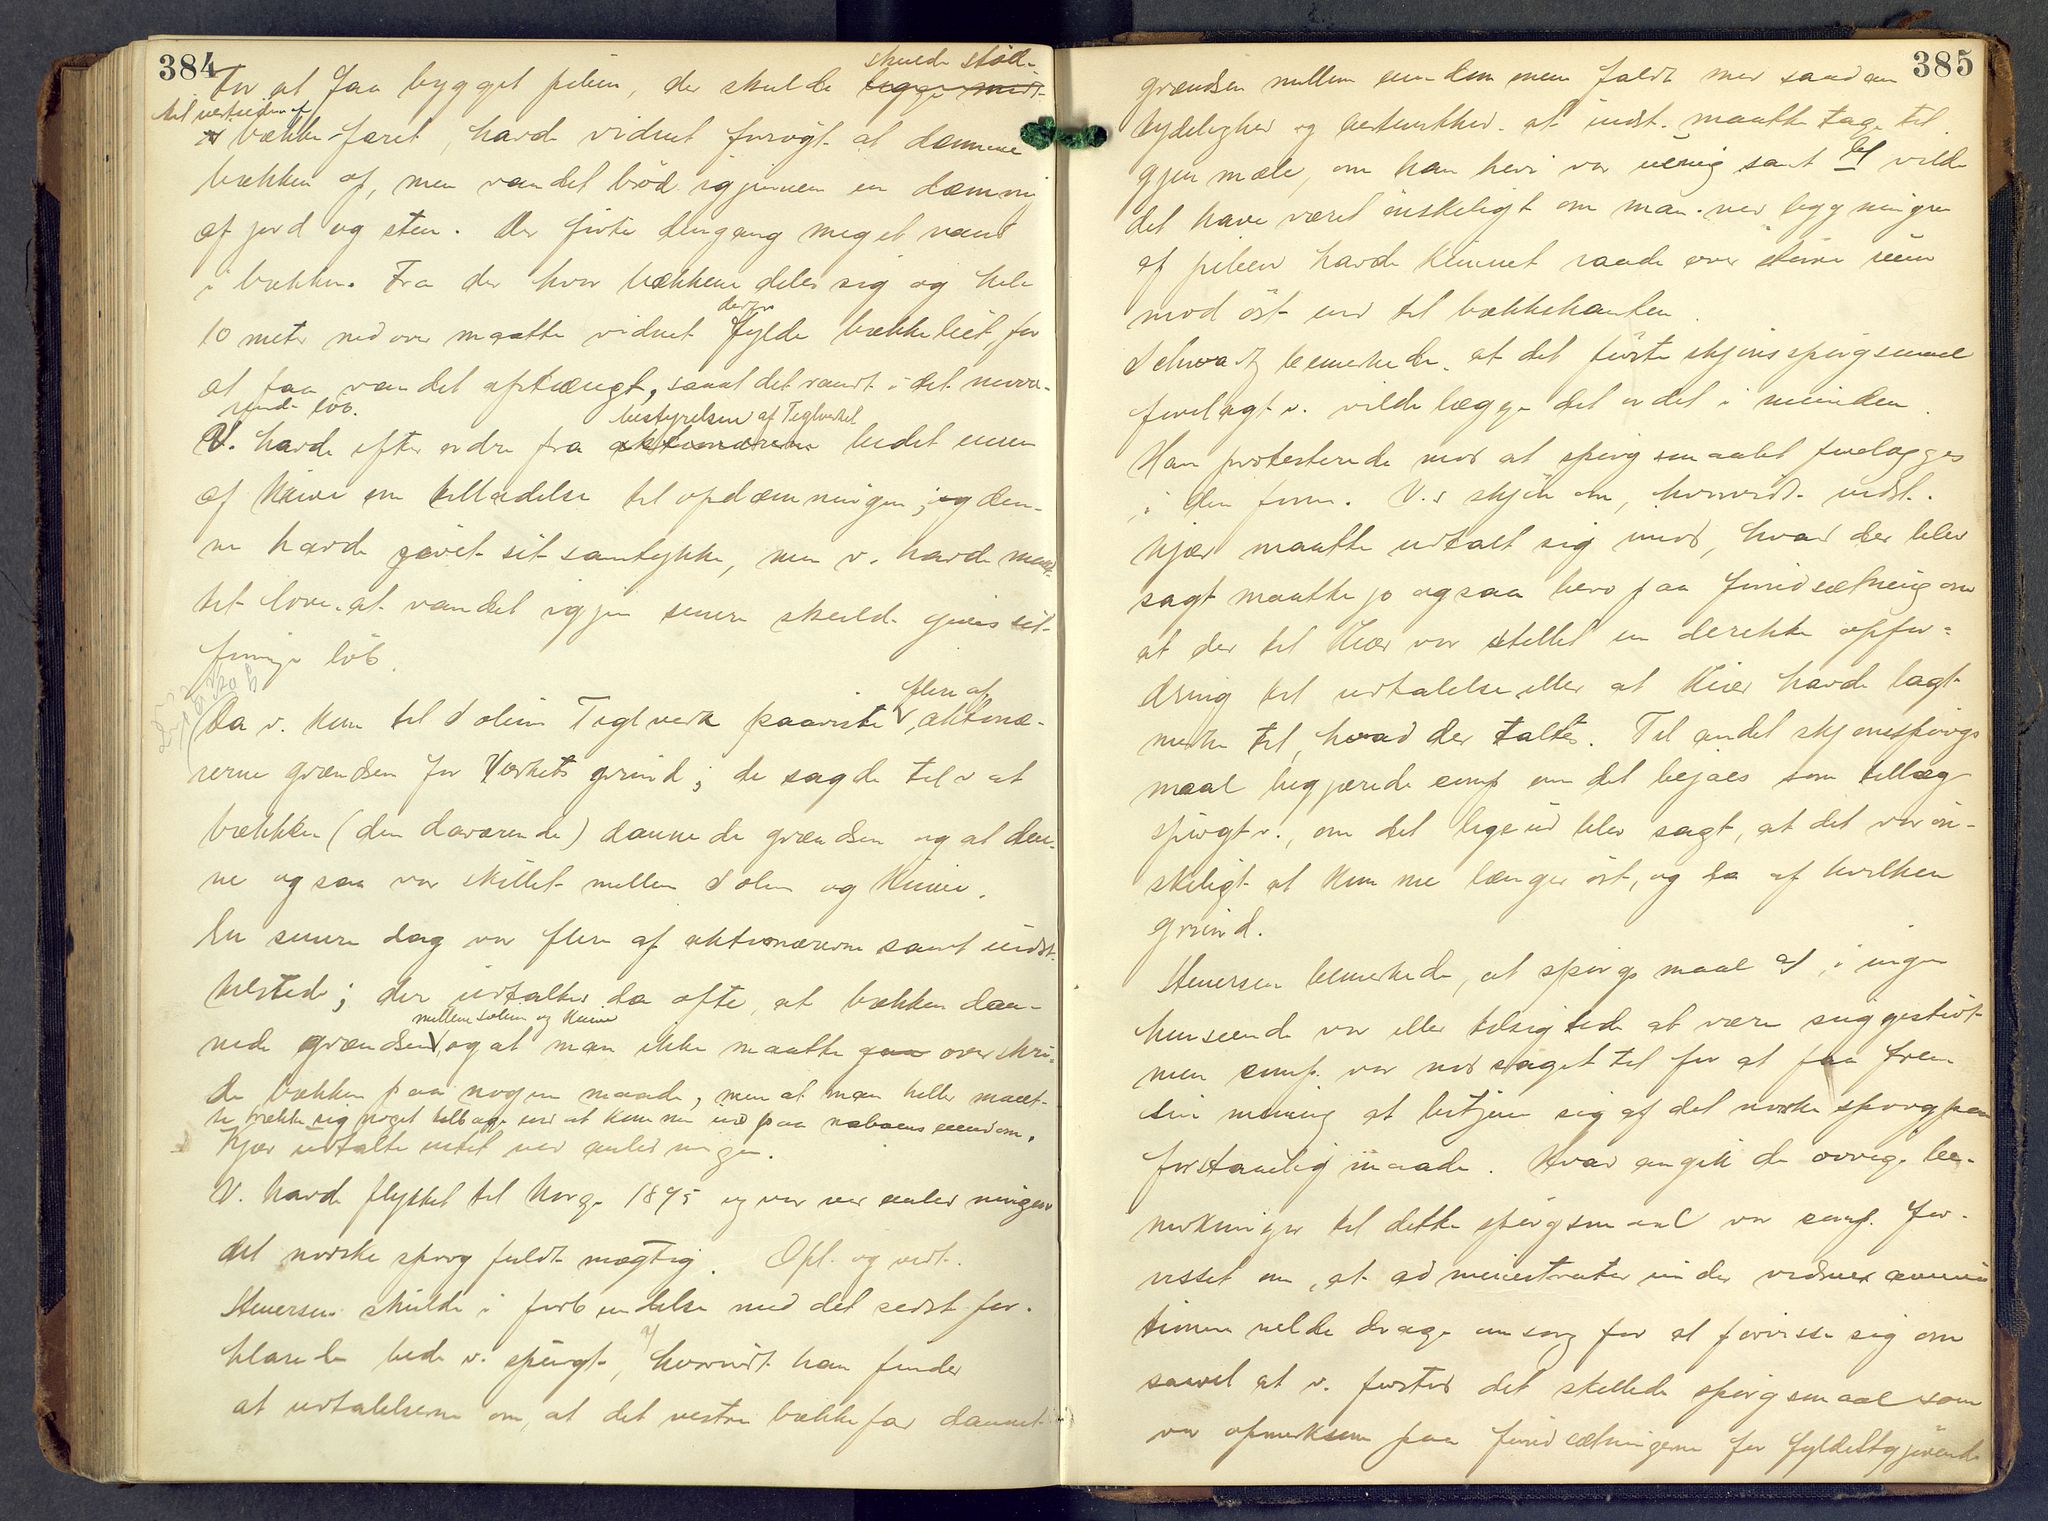 384
skulde støde
For at faa bygget pibien, der skulde ligge midt
til vestsiden af
bække-faret, havde vidnet forsögt at dæmme
bækken af, men vandet bröd igjennem en dæmning
af jord og sten. Der förte dengang meget vand
i bækken. Fra der hvor bækkene deler sig og hele
10 meter nedover maatte vidnet fylde bækkeleiet, for
at faa vandet afstængt, saaat det randt i det nuvæ-
rende löb.
bestyrelsen af Teglverket
V. havde efter ordre fra aktionærerne bedet
af Kiær om tilladelse til opdæmningen, og den-
ne havde givet sit samtykke, men v. havde maat-
tet love at vandet igjen senere skulde gives sit
forrige löb.
flere af
Da v. kom til Solum Teglverk paaviste aktionæ-
rerne grændsen for Verkets grund; de sagde til v at
bækken (den daværende) dannede grændsen og at den-
ne ogsaa var skillet mellem Solum og Kiær.
En senere dag var flere af aktionærerne samt indst.
tilstede; der udtaltes da ofte, at bækken dan-
mellem Solum og Kiær
nede grændsen, og at man ikke maatte gaa overskri-
de bækken paa nogen maade, men at man heller maat-
te trække sig noget tilbage end at komme ind paa naboens eiendom.
Kjær udtalte intet ved anledningen.
V. havde flyttet til Norge 1895 og var ved anledningen
det norske sprog fuldt mægtig. Opl. og vedt.
Stenersen skulde i forbindelse med det sidst for-
klarede bede v. spurgt, hvorvidt han finder
at udtalelserne om, at det vestre bækkefar dannet
385
grændsen mellem eiendommene faldt med saadan
tydelighed og bestemthed at indst. maatte tage til
gjenmæle, om han heri var uenig samt b) vilde
det have været önskeligt om man ved bygningen
af pibien havde kunnet raade over större rum
mod öst end til bækkekanten.
Schwartz bemerkede at det förste skjönsspörgsmaal
forelagt v. vilde lægge det ordet i munden.
Han protesterede mod at spörgsmaalet forelægges
i den form. V.s skjön om, hvorvidt indst.
Kjær maatte udtalt sig mod, hvad der blev
sagt maatte jo ogsaa bero paa forudsætning om
at der til Kiær var stillet en derekte opfor-
dring til udtalelse eller at Kiær havde lagt
merke til, hvad der taltes. Til andet skjönsspörgs
maal begjærede comp om det bejaes som tillæg
spurgt v., om det ligeud blev sagt, at det var ön-
skeligt at komme længer öst, og da af hvilken
grund.
Stenersen bemerkede, at spörgsmaal a), i ingen
henseende var eller tilsigtede at være suggestivt
men comp. var nödsaget til for at faa frem
sin mening at betjene sig af det norske sprog paa
forstaaelig maade. Hvad angik de övrige be-
merkninger til dette spörgsmaal var comp. for-
visset om, at administrator under
vilde drage omsorg for at forvisse sig om
saavel at v. forstod det stillede spörgsmaal som
var opmerksom paa forudsætningerne for fyldestgjörende